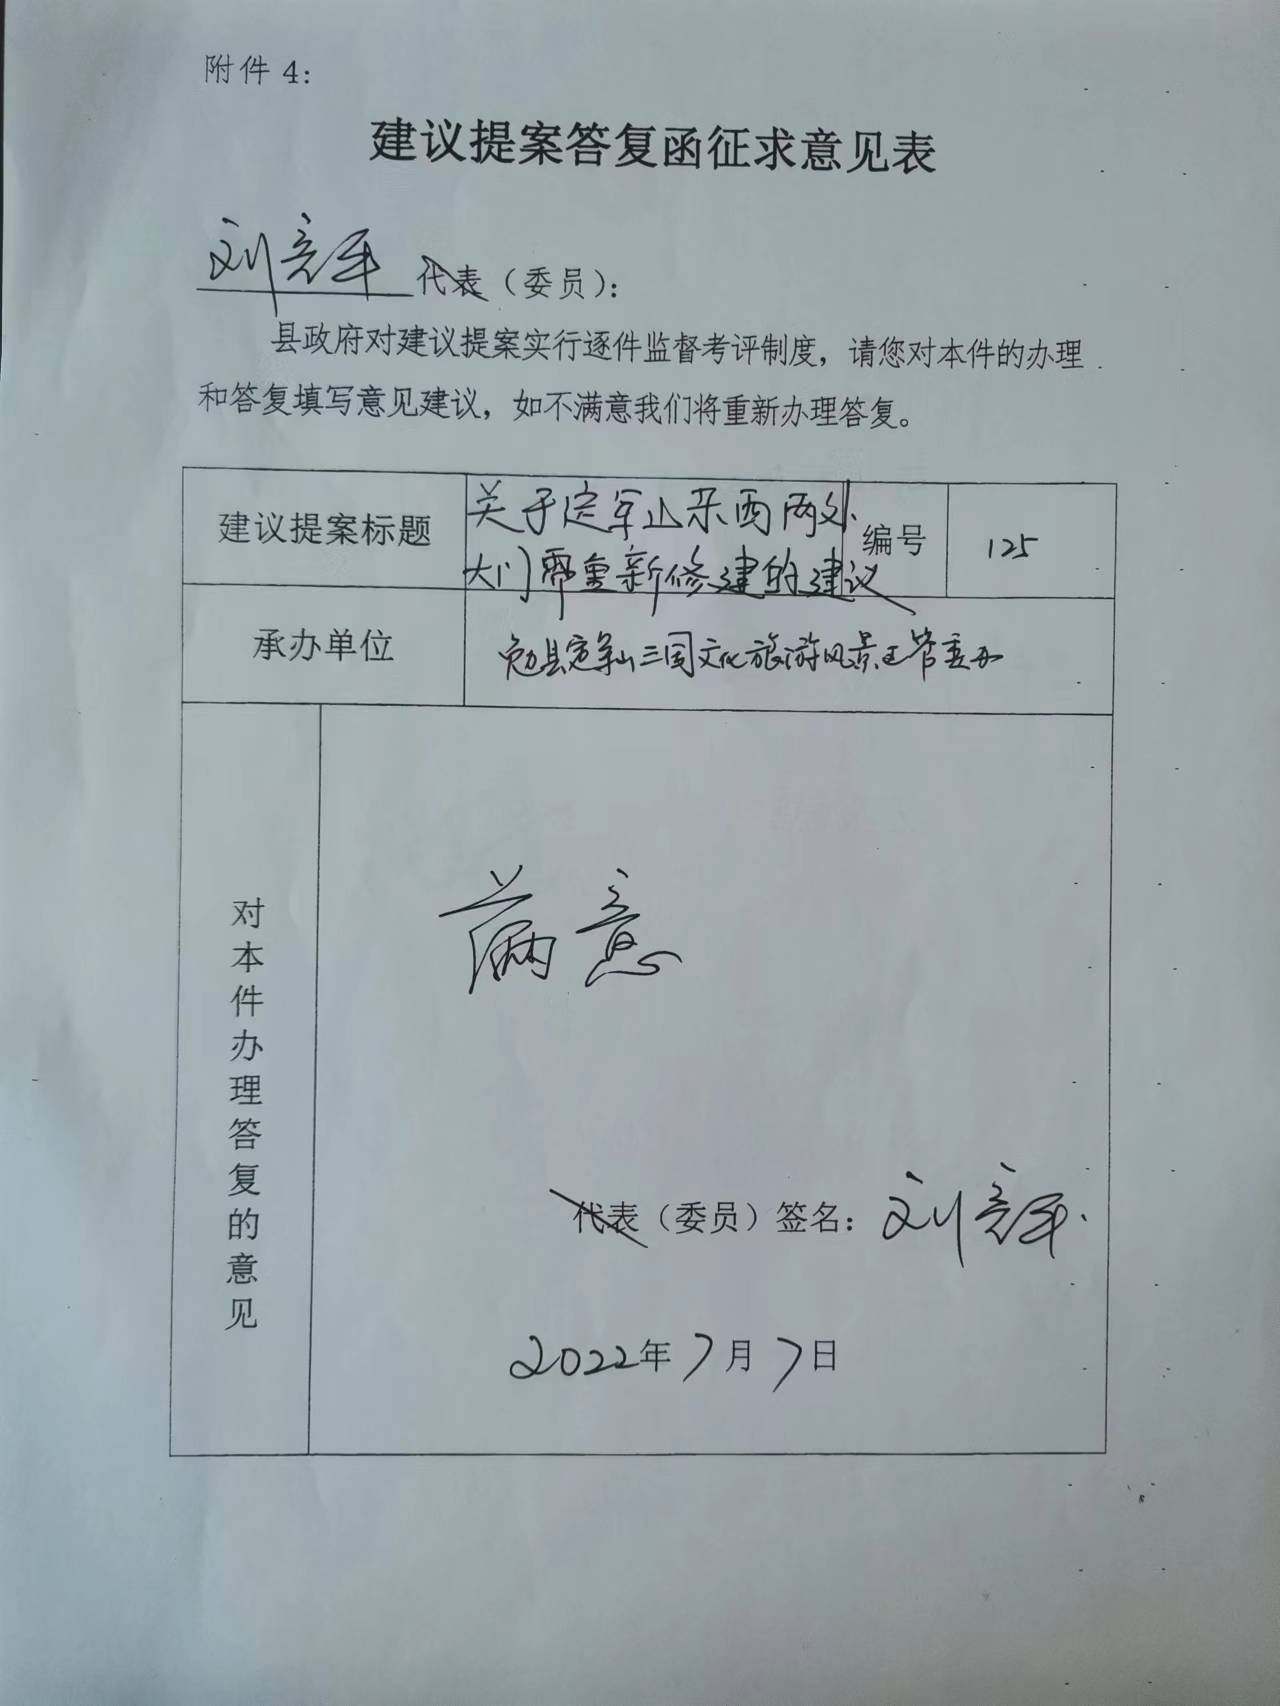 附件 4：
建议提案答复函征求意见表
刘彦军 代表（委员）：
县政府对建议提案实行逐件监督考评制度，请您对本件的办理
和答复填写意见建议，如不满意我们将重新办理答复。
建议提案标题
关于定军山东西两处
大门需重新修建的建议
编号
125
承办单位
勉县定军山三国文化旅游风景区管委办
对本件办理答复的意见
满意
代表（委员）签名：刘
2022年7月7日